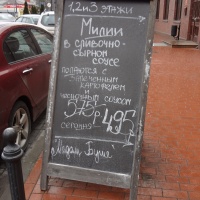 1,2 и 3 этажи
Мидии
в сливочно-
сырном
соусе
подаются с
запеченным
картофелем
и
чесночным соусом
575р 495р
сегодня
"Мадам Буше"